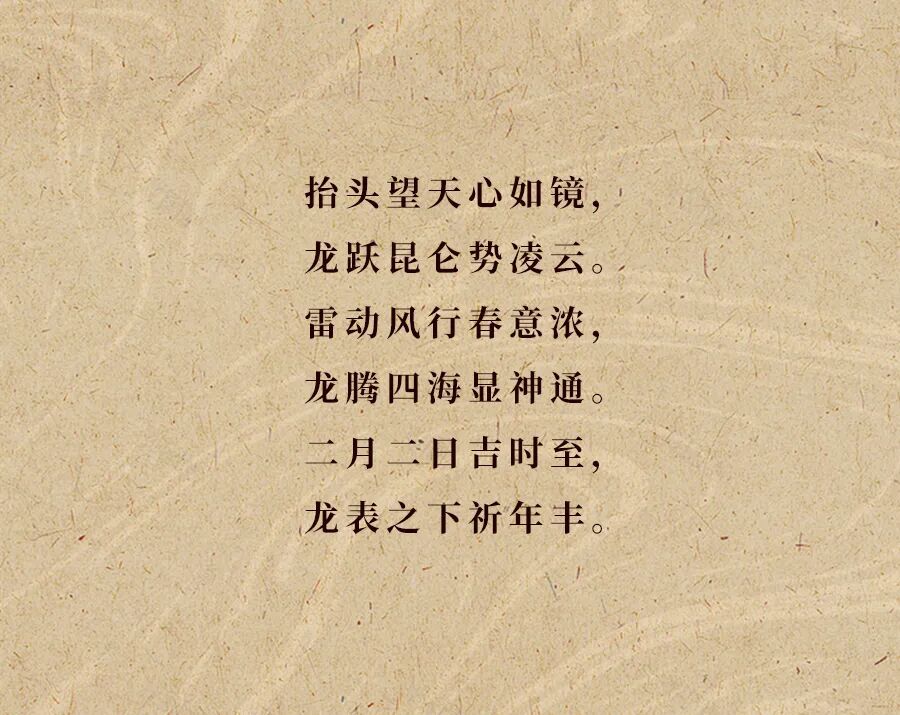 抬头望天心如镜，
龙跃昆仑势凌云。
雷动风行春意浓，
龙腾四海显神通。
二月二日吉时至，
龙表之下祈年丰。